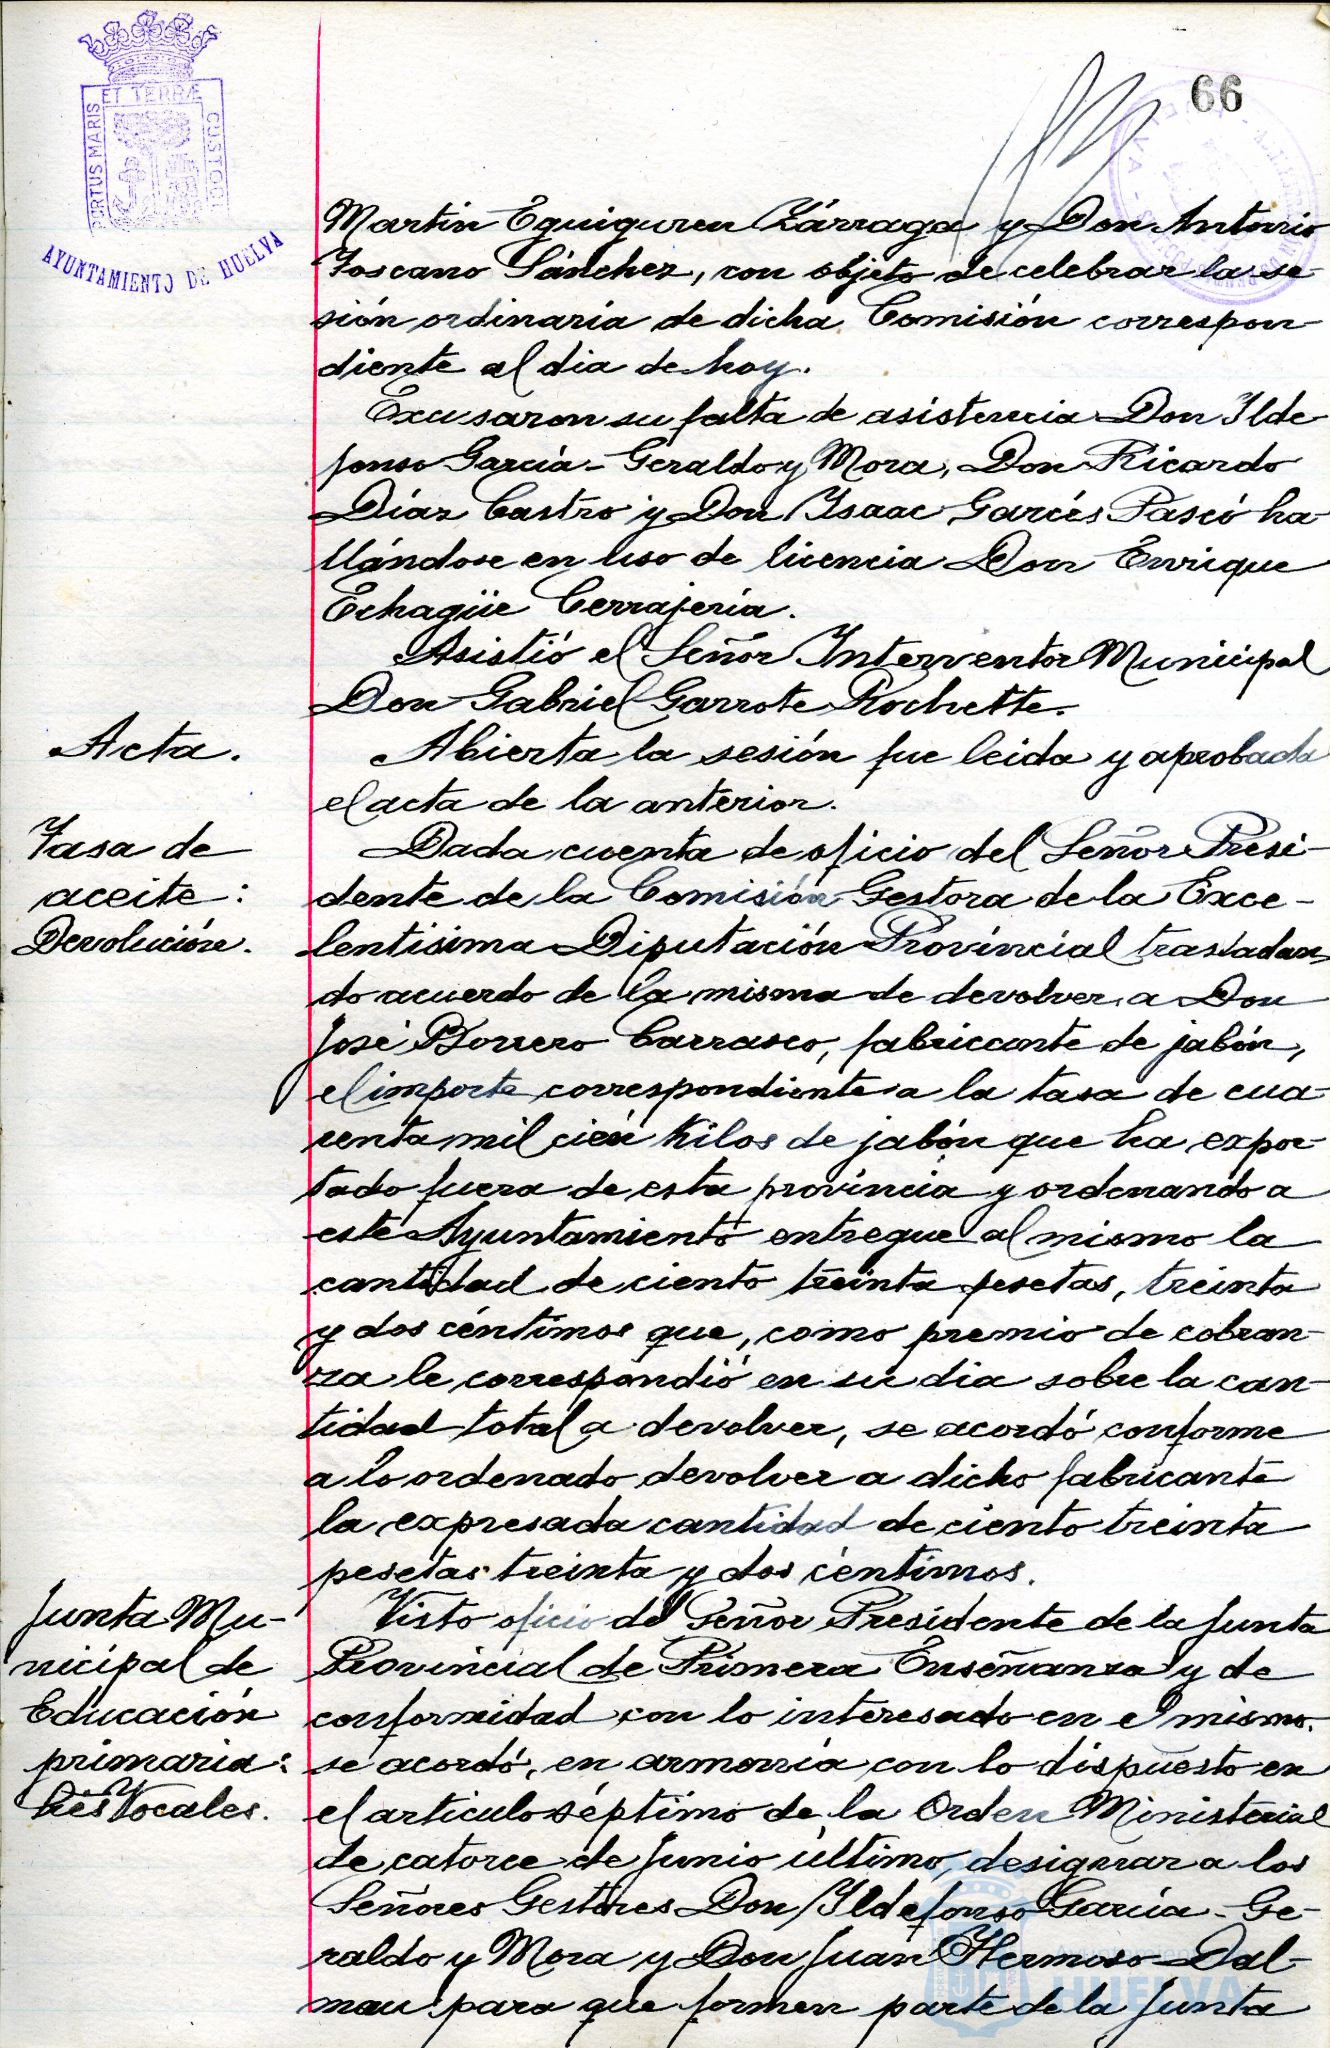 66
PORTUS MARIS ET TERRÆ CUSTODI
AYUNTAMIENTO DE HUELVA
Martín Eguiguren Lárraga y Don Antonio
Toscano Sánchez, con objeto de celebrar la se-
sión ordinaria de dicha Comisión correspon-
diente al dia de hoy.
Excusaron su falta de asistencia Don Ilde
fonso García-Geraldo y Mora, Don Ricardo
Díaz Castro y Don Isaac Garcés Pascó ha-
llándose en uso de licencia Don Enrique
Echagüe Cerrajería.
Asistió el Señor Interventor Municipal
Don Gabriel Garrote Rochette.
Acta.
Abierta la sesión fue leida y aprobada
el acta de la anterior.
Tasa de
aceite:
Devolución.
Dada cuenta de oficio del Señor Presi-
dente de la Comisión Gestora de la Exce-
lentísima Diputación Provincial trasladan-
do acuerdo de la misma de devolver a Don
José Borrero Carrasco, fabriccante de jabón,
el importe correspondiente a la tasa de cua-
renta mil cien kilos de jabón que ha expor-
tado fuera de esta provincia y ordenando a
este Ayuntamiento entregue al mismo la
cantidad de ciento treinta pesetas, treinta
y dos céntimos que, como premio de cobran-
za le correspondió en su dia sobre la can-
tidad total a devolver, se acordó conforme
a lo ordenado devolver a dicho fabricante
la expresada cantidad de ciento treinta
pesetas treinta y dos céntimos.
Junta Mu-
nicipal de
Educación
primaria:
tres Vocales.
Visto oficio del Señor Presidente de la Junta
Provincial de Primera Enseñanza y de
conformidad con lo interesado en el mismo.
se acordó, en armonía con lo dispuesto en
el artículo séptimo de la Orden Ministerial
de catorce de Junio último, designar a los
Señores Gestores Don Ildefonso García-Ge-
raldo y Mora y Don Juan Hermoso Dal-
mau para que formen parte de la Junta
HUELVA